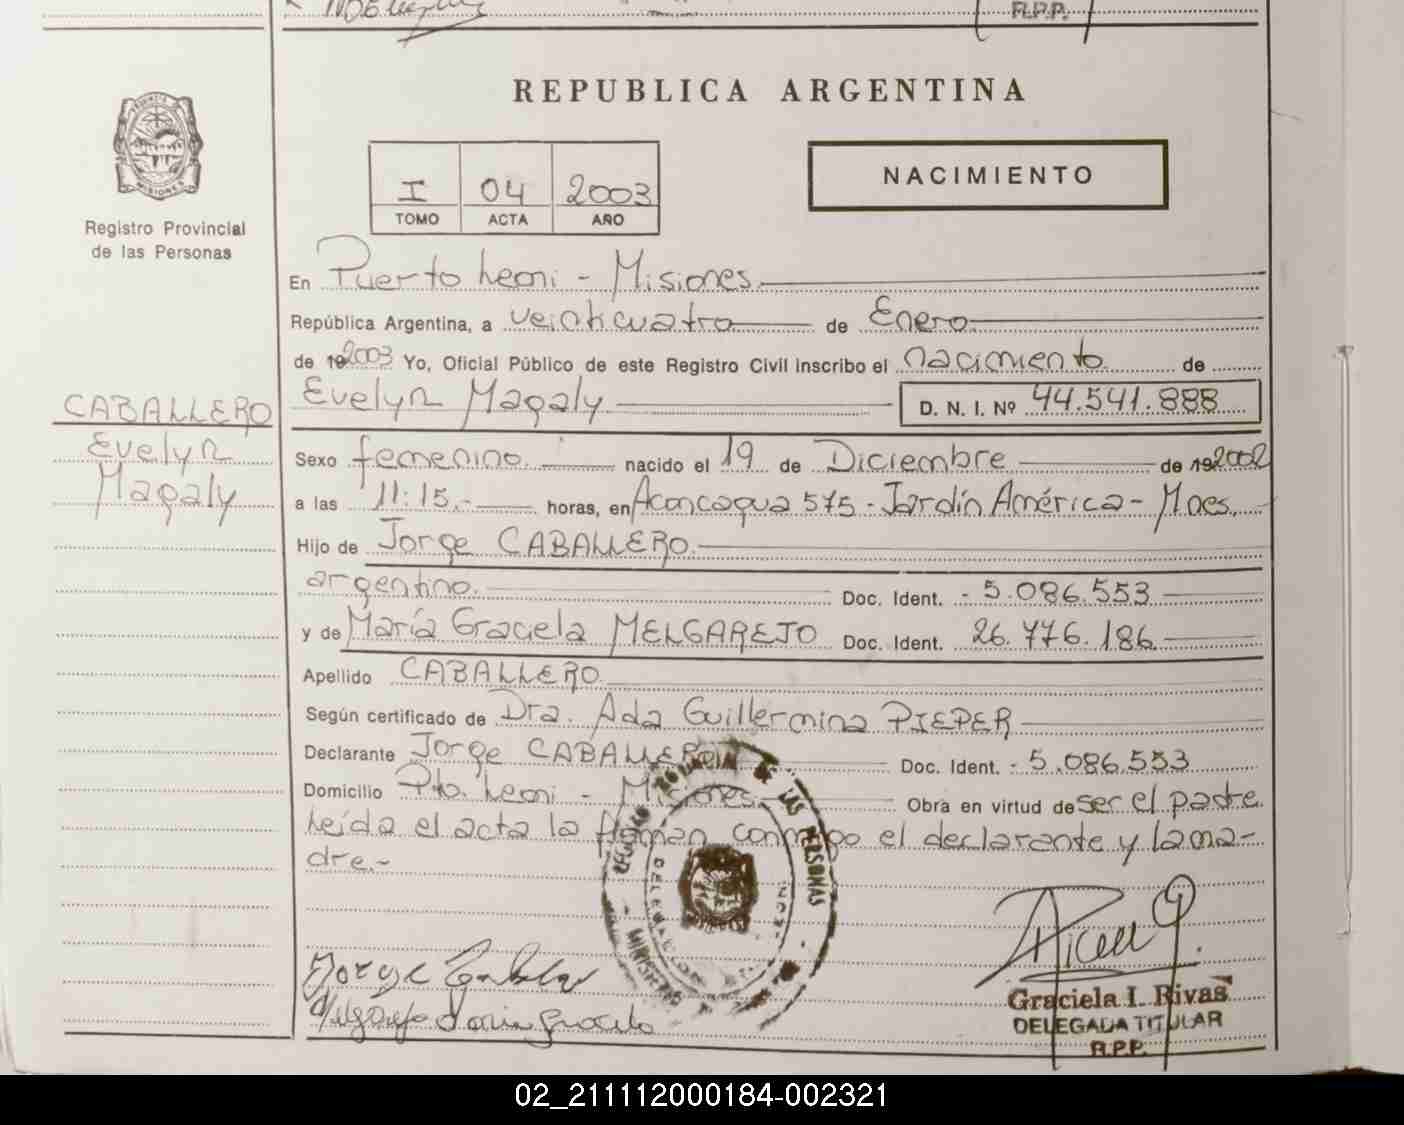 R.P.P.
REPUBLICA ARGENTINA
PROVINCIA DE MISIONES
Registro Provincial
de las Personas
I 04 2003
TOMO ACTA AÑO
NACIMIENTO
En Puerto Leoni - Misiones
República Argentina, a veinticuatro de Enero
de 192003 Yo, Oficial Público de este Registro Civil inscribo el nacimiento de
Evelyn Magaly D. N. I. Nº 44.541.888
CABALLERO
Evelyn
Magaly
Sexo femenino. nacido el 19 de Diciembre de 192002
a las 11:15.- horas, en Aconcagua 575 - Jardín América - Mnes.
Hijo de Jorge CABALLERO
argentino. Doc. Ident. - 5.086.553
y de María Graciela MELGAREJO Doc. Ident. 26.776.186
Apellido CABALLERO
Según certificado de Dra. Ada Guillermina PIEPER
Declarante Jorge CABALLERO Doc. Ident. - 5.086.553
Domicilio Pto. Leoni - Misiones Obra en virtud de ser el padre.
Leída el acta la firman conmigo el declarante y la ma-
dre.-
REGISTRO PROVINCIAL DE LAS PERSONAS
Jorge Caballero
Melgarejo Maria Graciela
Graciela I. Rivas
DELEGADA TITULAR
R.P.P.
02_211112000184-002321